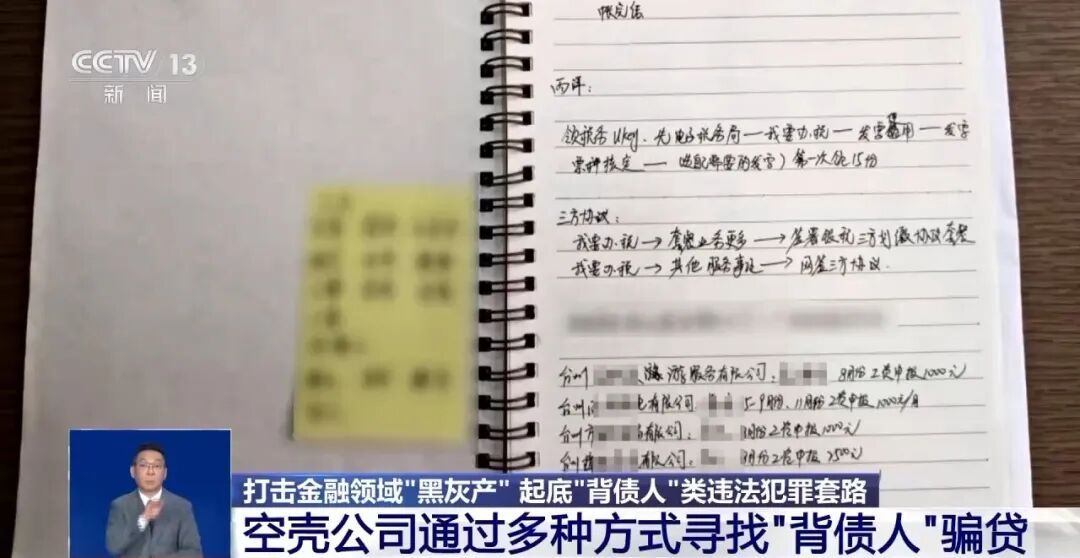 CCTV 13
新闻
丙洋：
领税务Ukey. 先电子税务局—我要办税—发票使用—发票
票种核定— 选配需要的发票）第一次领15份
三方协议：
我要办税→套餐业务更多→签署银税三方划缴协议套餐
我要办税→其他服务事项→网签三方协议.
台州 旅游服务有限公司： 8月份工资申报1000元
台州 有限公司： 5-9月份、11月份工资申报1000元/月
台州市 有限公司： 8月份工资申报1000元
台州 有限公司： 8月份工资申报7500元
打击金融领域"黑灰产" 起底"背债人"类违法犯罪套路
空壳公司通过多种方式寻找"背债人"骗贷